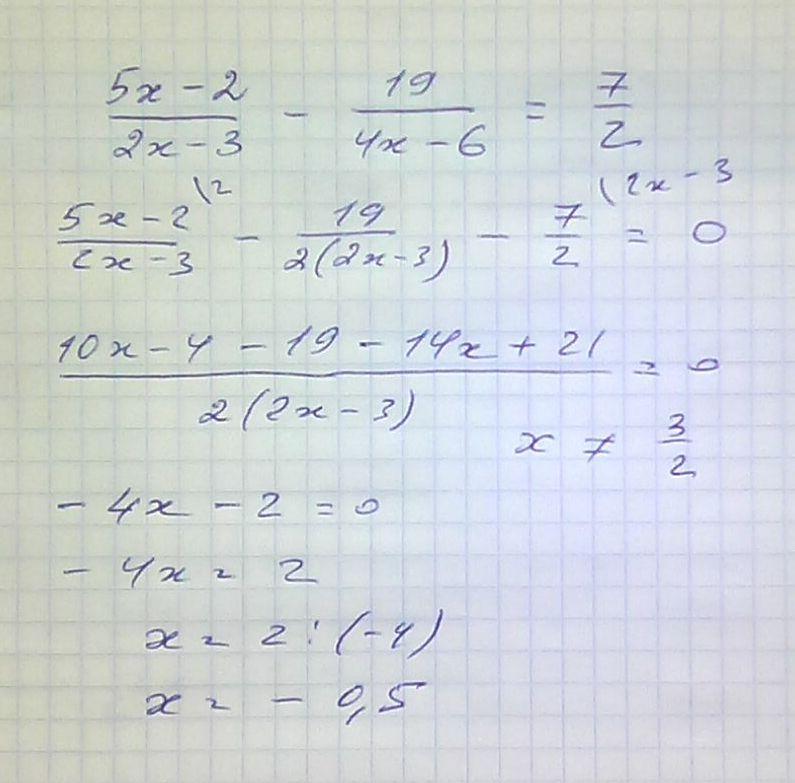 (5x-2)/(2x-3) - 19/(4x-6) = 7/2
(5x-2)/(2x-3) \2 - 19/(2(2x-3)) - 7/2 \2x-3 = 0
(10x-4-19-14x+21)/(2(2x-3)) = 0
x ≠ 3/2
-4x-2=0
-4x=2
x=2:(-4)
x=-0,5